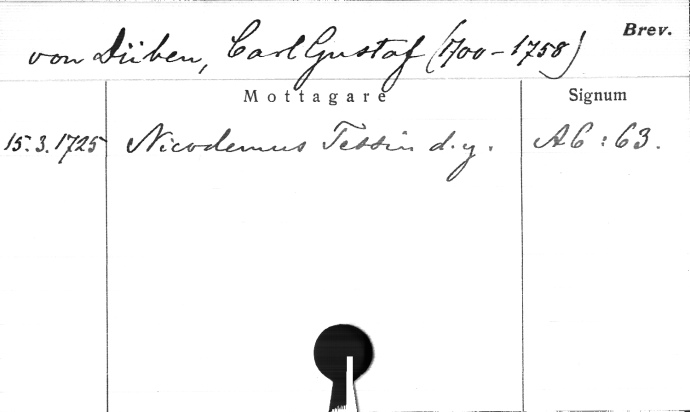 von Düben, Carl Gustaf (1700-1758)
Brev.
Mottagare
Signum
15.3.1725
Nicodemus Tessin d.y.
A6:63.